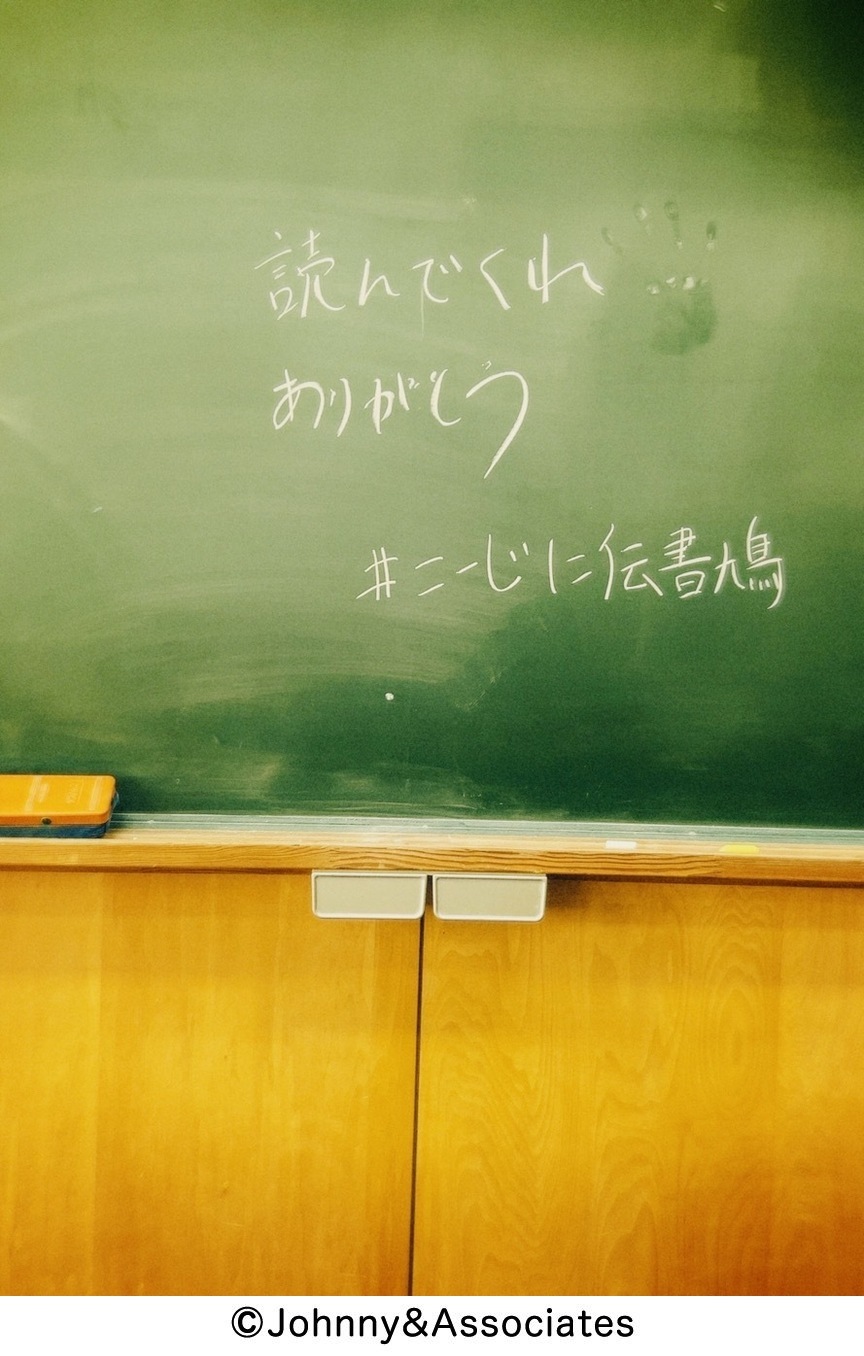 読んでくれ
ありがとう
#こーじに伝書鳩
©Johnny&Associates